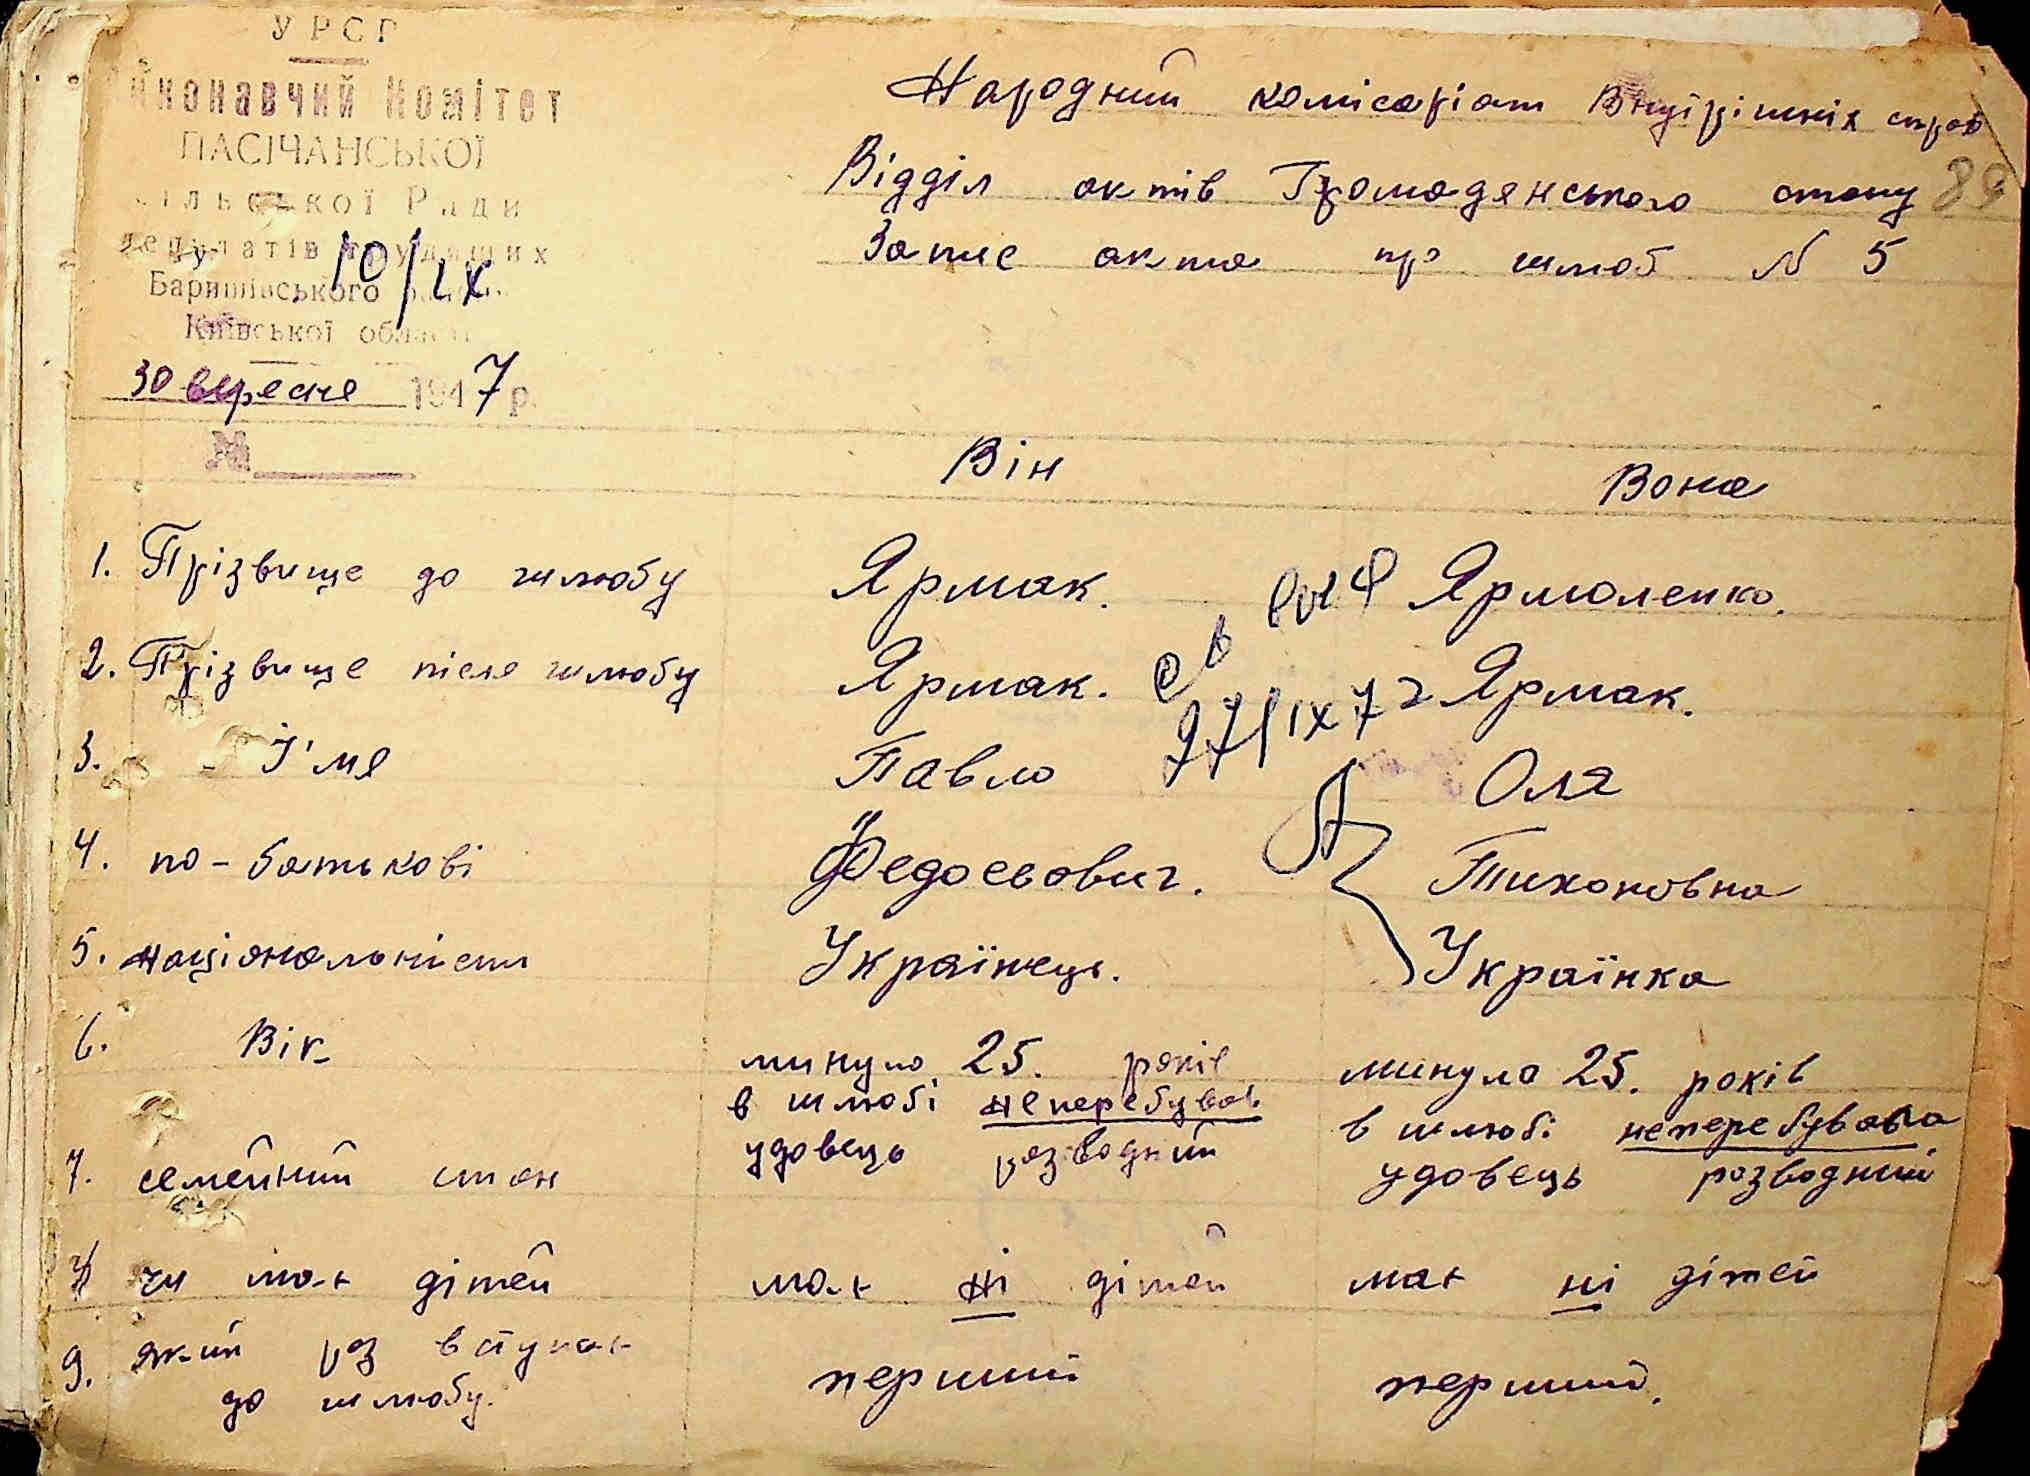 УРСР
Виконавчий Комітет
ПАСІЧАНСЬКОЇ
сільської Ради
депутатів трудящих
Баришівського
Київської області
10/IX
30 вересня 1947 р.
№
Народний комісаріат Внутрішніх справ
Відділ актів Громадянського стану 89
Запис акта про шлюб N 5
Він Вона
1. Прізвище до шлюбу Ярмак. Ярмоленко.
2. Прізвище після шлюбу Ярмак. Ярмак.
27/IX 72
3. І'мя Павло Оля
4. по-батькові Федосеович. Тихоновна
5. національність Українець. Українка
6. Вік минуло 25. років минуло 25. років
в шлюбі неперебував в шлюбі неперебувала
7. семейний стан удовець розводний удовець розводний
8 чи має дітей має ні дітей має ні дітей
9. який раз вступає перший перший.
до шлюбу.